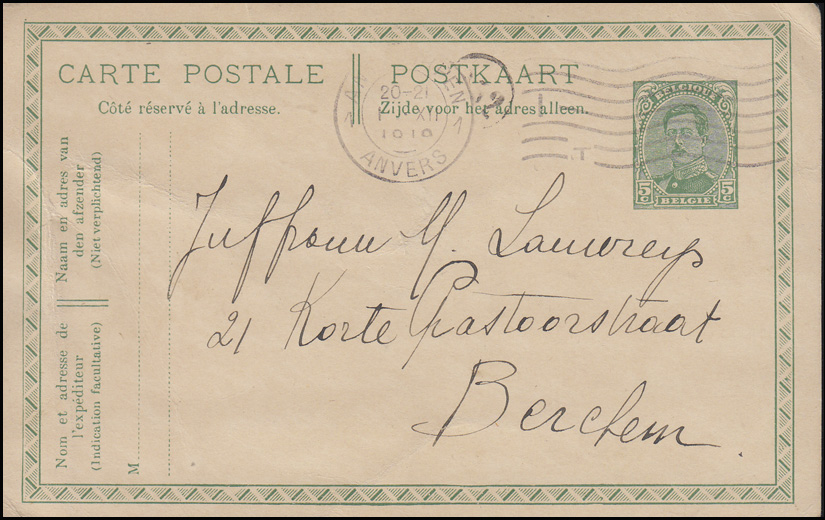 CARTE POSTALE
POSTKAART
Côté réservé à l'adresse.
Zijde voor het adres alleen.
20-21
XII
1919
ANVERS
1 1
BELGIQUE
5 C 5 C
BELGIË
Naam en adres van
den afzender
(Niet verplichtend)
Nom et adresse de
l'expéditeur
(Indication facultative)
M
Juffrouw M. Lauwreys
21 Korte Pastoorstraat
Berchem.